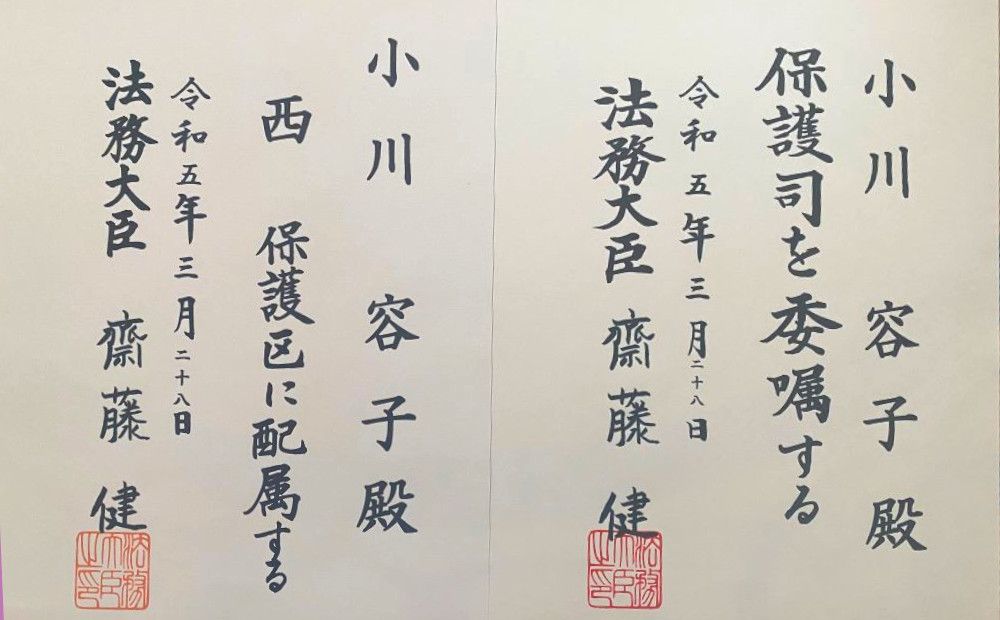 小川 容子殿
保護司を委嘱する
令和五年三月二十八日
法務大臣 齋藤 健
法務大臣之印
小川 容子殿
西 保護区に配属する
令和五年三月二十八日
法務大臣 齋藤 健
法務大臣之印